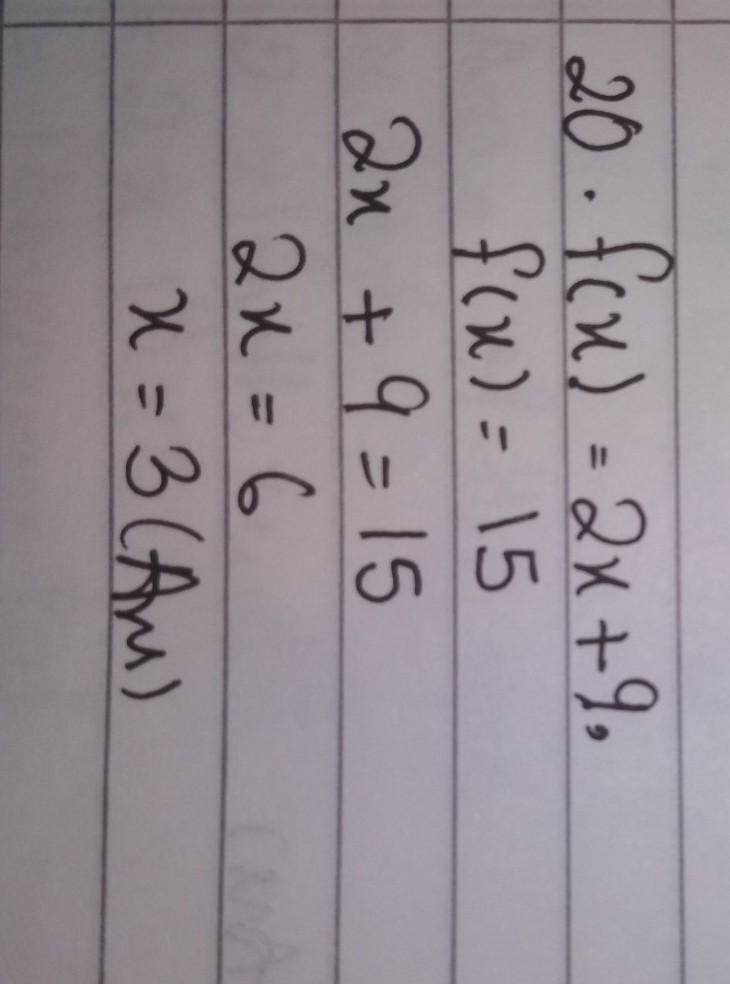 20. f(x) = 2x + 9,
f(x) = 15
2x + 9 = 15
2x = 6
x = 3 (Ans)